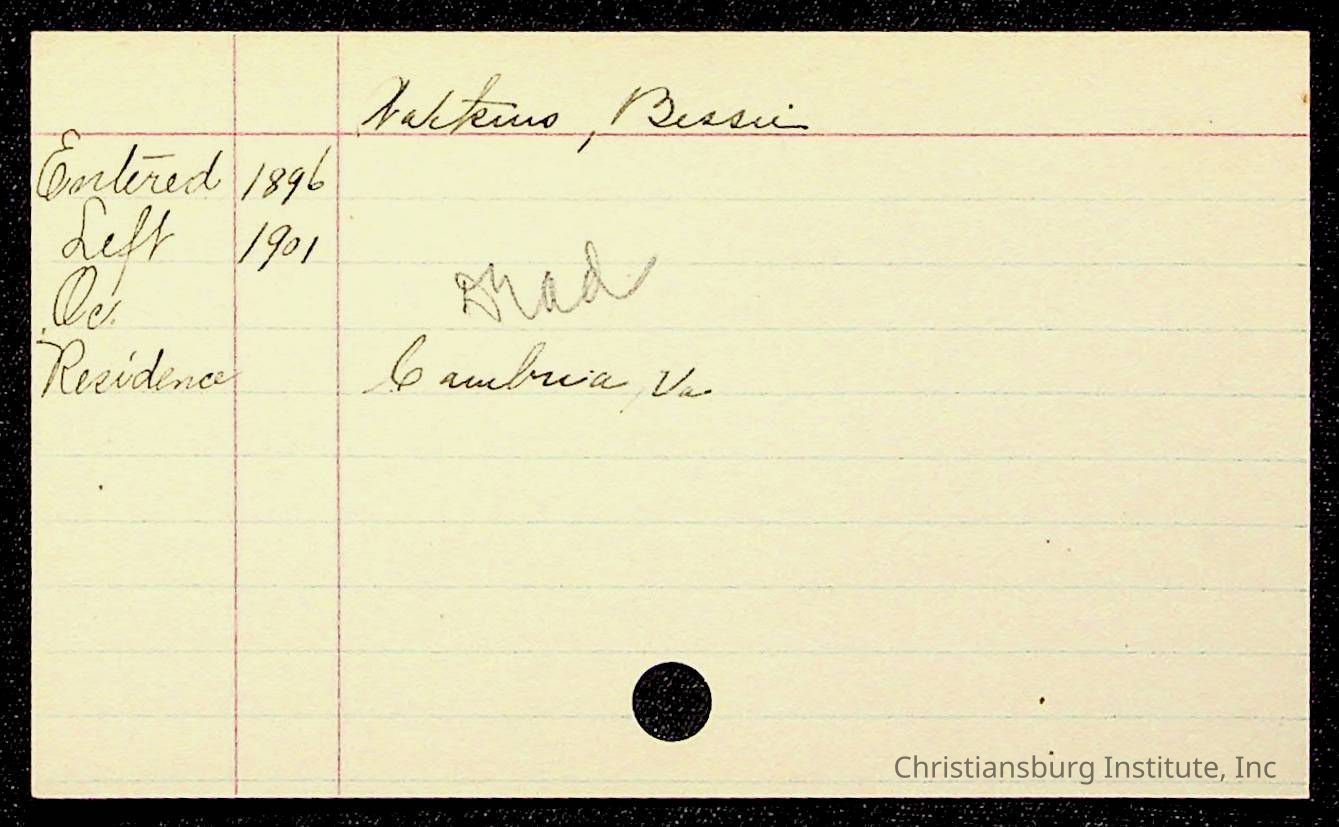 Watkins, Bessie
Entered 1896
Left 1901
Oc.
Dead
Residence Cambria, Va
Christiansburg Institute, Inc